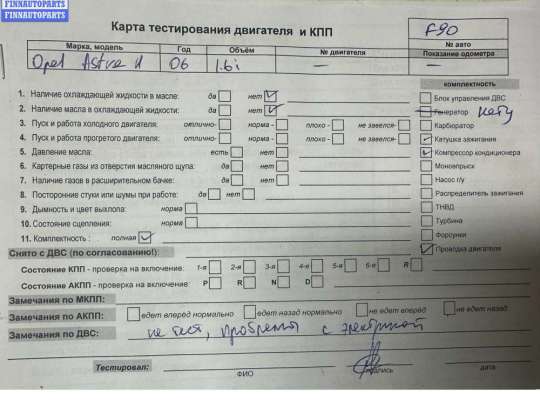 FINNAUTOPARTS
FINNAUTOPARTS
Карта тестирования двигателя и КПП
F90
Марка, модель Год Объём № двигателя № авто
Показание одометра
Opel Astra H 06 1.6i — —
комплектность
1. Наличие охлаждающей жидкости в масле: да нет
Блок управления ДВС
2. Наличие масла в охлаждающей жидкости: да нет
Генератор нету
3. Пуск и работа холодного двигателя: отлично- норма - плохо - не завелся-
Карбюратор
4. Пуск и работа прогретого двигателя: отлично- норма - плохо - не завелся-
Катушка зажигания
5. Давление масла: есть нет
Компрессор кондиционера
6. Картерные газы из отверстия масляного щупа: да нет
Моновпрыск
7. Наличие газов в расширительном бачке: да нет
Насос г/у
8. Посторонние стуки или шумы при работе: да нет
Распределитель зажигания
9. Дымность и цвет выхлопа: норма
ТНВД
10. Состояние сцепления: норма
Турбина
11. Комплектность : полная
Форсунки
Снято с ДВС (по согласованию!):
Проводка двигателя
Состояние КПП - проверка на включение: 1-я 2-я 3-я 4-я 5-я 6-я R
Состояние АКПП - проверка на включение: P R N D
Замечания по МКПП:
Замечания по АКПП: едет вперед нормально едет назад нормально не едет вперед не едет назад
Замечания по ДВС: не тест, проблема с электрикой
Тестировал: ФИО подпись дата